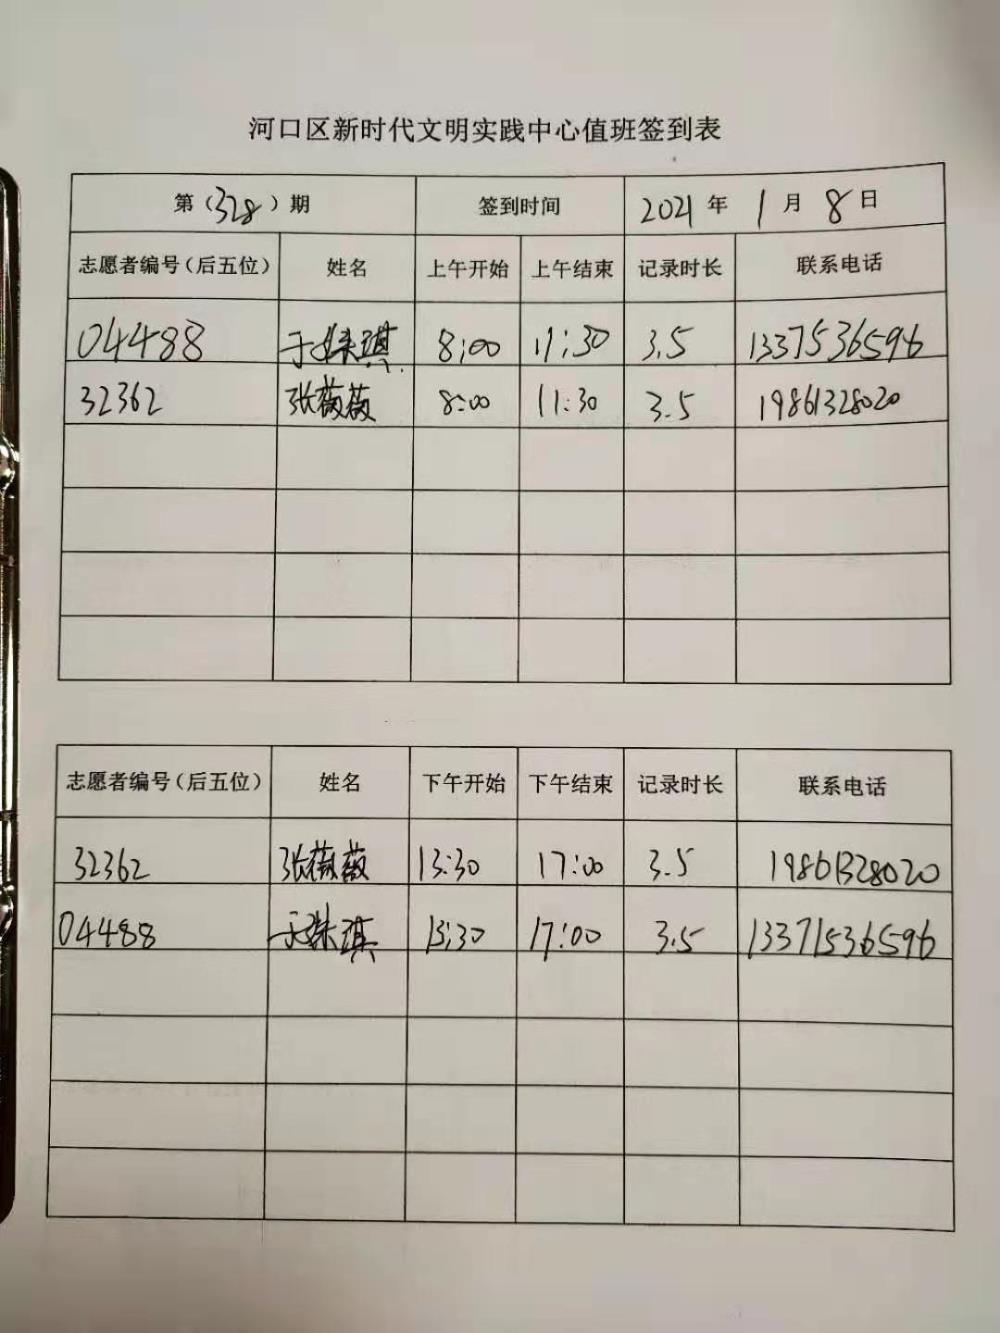 河口区新时代文明实践中心值班签到表
第（328）期 签到时间 2021 年 1 月 8 日
志愿者编号（后五位） 姓名 上午开始 上午结束 记录时长 联系电话
04488 于姝琪 8:00 11:30 3.5 13371536596
32362 张薇薇 8:00 11:30 3.5 19861328020
志愿者编号（后五位） 姓名 下午开始 下午结束 记录时长 联系电话
32362 张薇薇 13:30 17:00 3.5 19861328020
04488 于姝琪 13:30 17:00 3.5 13371536596